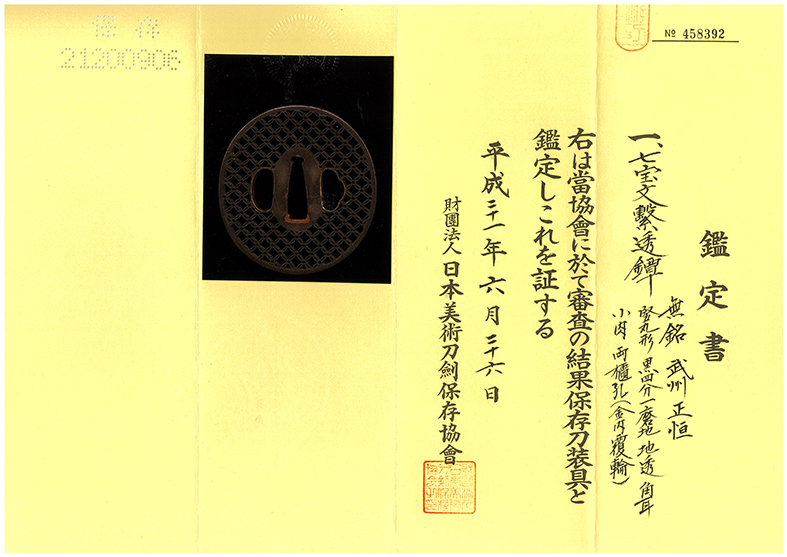 № 458392
鑑定書
一、七宝文繋透鐔
無銘 武州正恒
竪丸形 黒四分一磨地 地透 角耳
小肉 両櫃孔(金内覆輪)
右は當協會に於て審査の結果保存刀装具と
鑑定しこれを証する
平成二十一年六月二十六日
財團法人 日本美術刀劍保存協會
保存
21200906